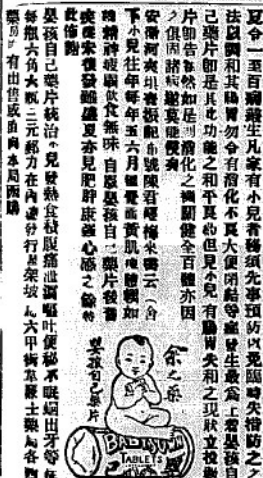 夏令一至百病叢生凡家有小兒者務須先事預防以免臨時失措防之之
法以調和其腸胃勿令有化不良大便閉結等症發生最為上着嬰孩自
己藥片即是其功能之和平真品但見小兒有腸胃失和之現狀立投數
片即告霍然如是則消化之機關健全百體亦因
之俱固諸病莫能侵矣
安徽河壩春振記布號陳君梅來書云(舍
下小兒往年每年五六月間面黃肌瘦體如
精神疲飲食無味自服嬰孩自己藥片後舊
疾從未復發雖盛夏亦見肥胖康強心感之餘特
此佈謝
嬰孩自己藥片統治小兒發熱食積腹痛泄瀉嘔吐便秘不眠蛔出牙等症
每瓶六角大瓶二元郵力在內發行星架坡六甲街韋廉士藥局各西
藥房有出售或直向本局函購
余之藥
嬰孩自己藥片
BABY'S OWN
TABLETS